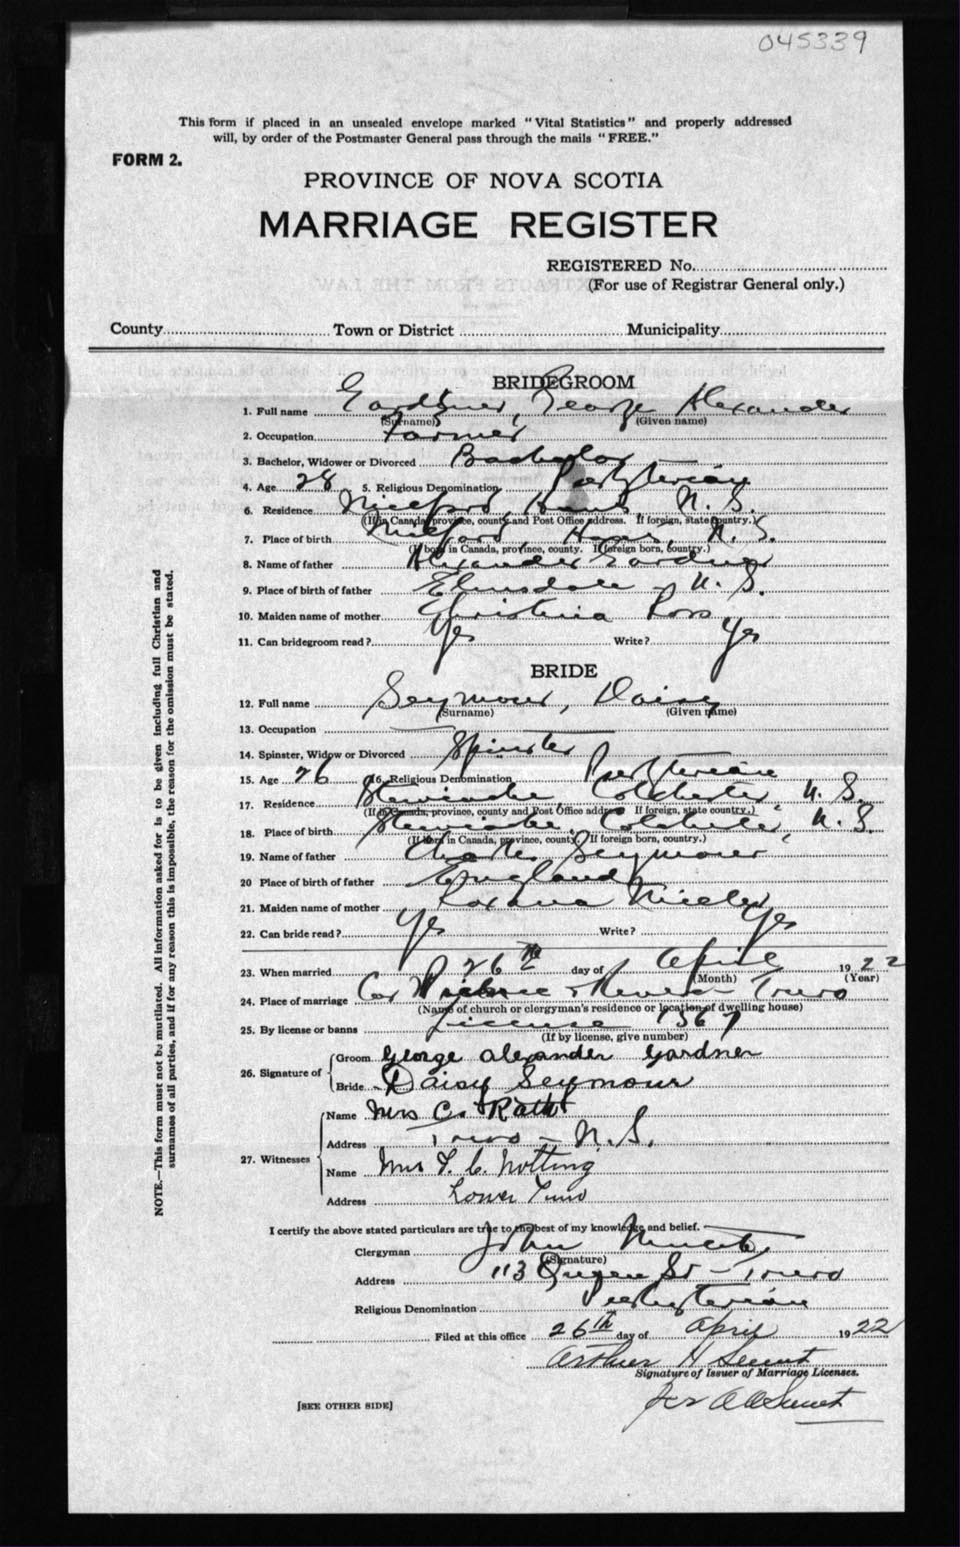 045339
This form if placed in an unsealed envelope marked "Vital Statistics" and properly addressed
will, by order of the Postmaster General pass through the mails "FREE."
FORM 2.
PROVINCE OF NOVA SCOTIA
MARRIAGE REGISTER
REGISTERED No.
(For use of Registrar General only.)
County Town or District Municipality
BRIDEGROOM
1. Full name Gardner, George Alexander
(Surname) (Given name)
2. Occupation Farmer
3. Bachelor, Widower or Divorced Bachelor
4. Age 28 5. Religious Denomination Presbyterian
6. Residence Milford, Hants N. S.
(If in Canada, province, county and Post Office address. If foreign, state country.)
7. Place of birth Milford, Hants, N. S.
(If born in Canada, province, county. If foreign born, country.)
8. Name of father Alexander Gardner
9. Place of birth of father Elmsdale N. S.
10. Maiden name of mother Christina Ross
11. Can bridegroom read? Yes Write? Yes
BRIDE
12. Full name Seymour, Daisy
(Surname) (Given name)
13. Occupation
14. Spinster, Widow or Divorced Spinster
15. Age 26 16. Religious Denomination Presbyterian
17. Residence Stewiacke Colchester N. S.
(If in Canada, province, county and Post Office address If foreign, state country.)
18. Place of birth Stewiacke, Colchester, N. S.
(If born in Canada, province, county. If foreign born, country.)
19. Name of father Charles Seymour
20 Place of birth of father England
21. Maiden name of mother Roxana
22. Can bride read? Yes Write? Yes
23. When married 26th day of April 1922
(Month) (Year)
24. Place of marriage Cor Truro
(Name of church or clergyman's residence or location of dwelling house)
25. By license or banns License 1567
(If by license, give number)
26. Signature of Groom George Alexander Gardner
Bride Daisy Seymour
27. Witnesses Name Mrs C.
Address Truro – N.S.
Name Mrs F. C. Notting
Address Lower Truro
I certify the above stated particulars are true to the best of my knowledge and belief.
Clergyman John
(Signature)
Address 113 Queen St – Truro
Religious Denomination Presbyterian
Filed at this office 26th day of April 1922
Arthur H
Signature of Issuer of Marriage Licenses.
[SEE OTHER SIDE]
NOTE.—This form must not be mutilated. All information asked for is to be given including full Christian and
surnames of all parties, and if for any reason this is impossible, the reason for the omission must be stated.